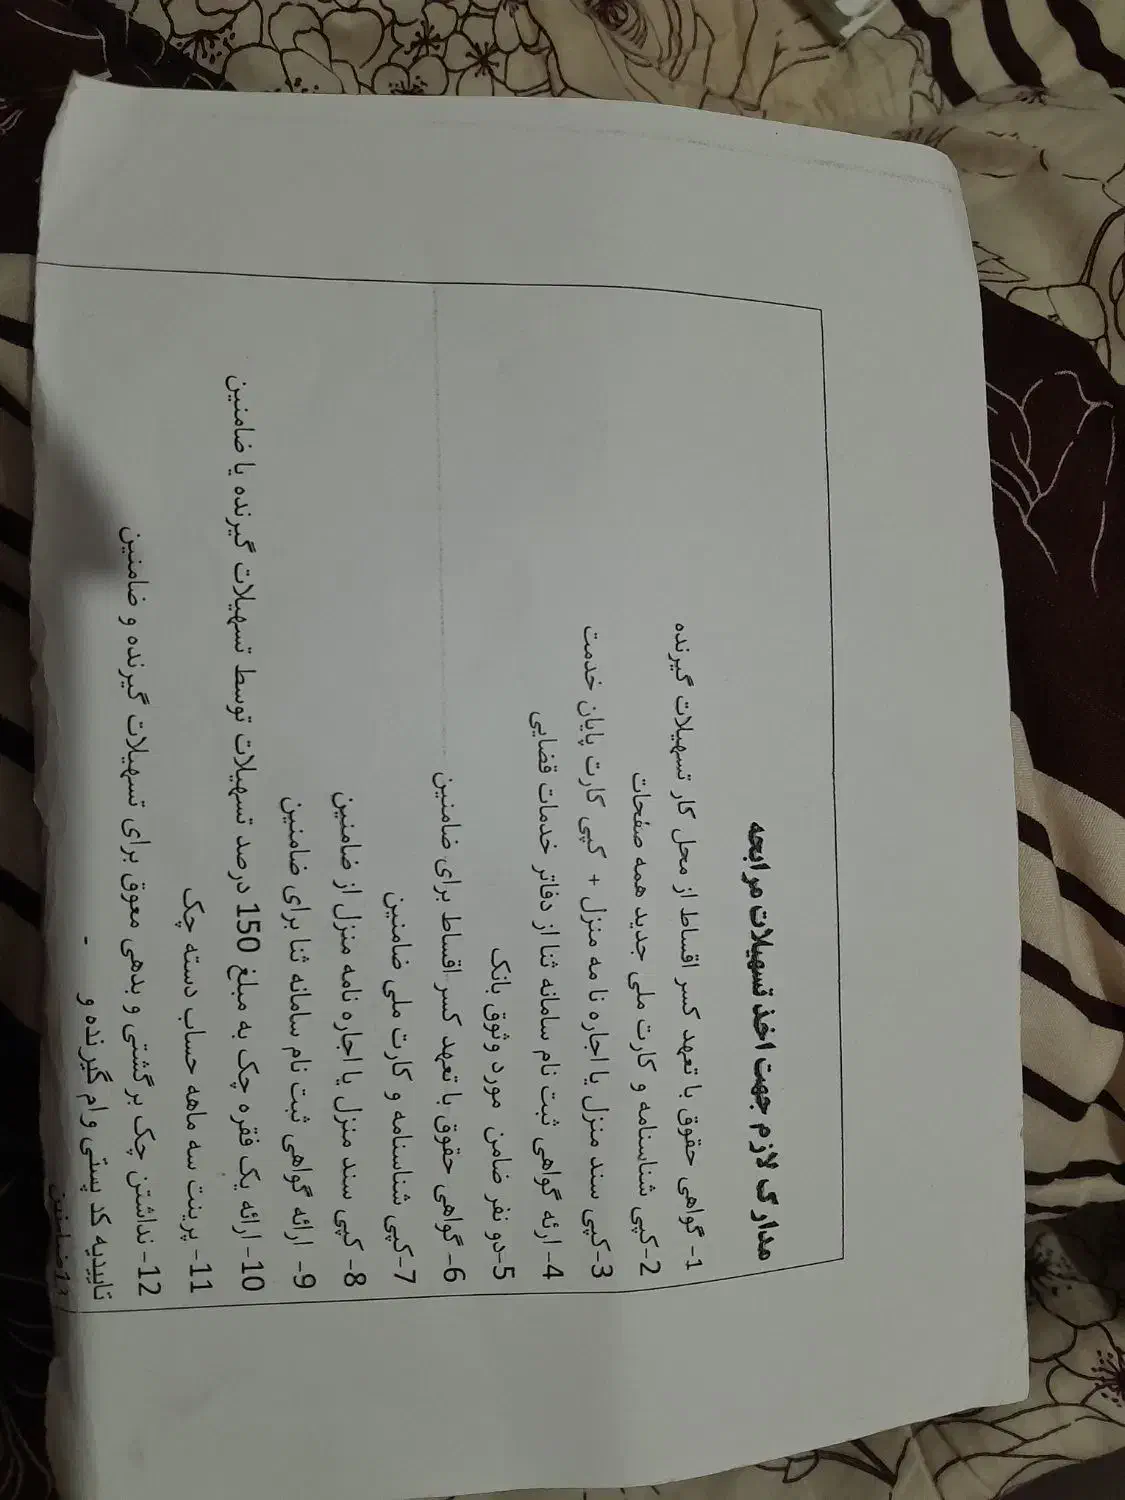 مدارک لازم جهت اخذ تسهیلات مرابحه
1- گواهی حقوق با تعهد کسر اقساط از محل کار تسهیلات گیرنده
2-کپی شناسنامه و کارت ملی جدید همه صفحات
3-کپی سند منزل یا اجاره نا مه منزل + کپی کارت پایان خدمت
4- ارئه گواهی ثبت نام سامانه ثنا از دفاتر خدمات قضایی
5-دو نفر ضامن مورد وثوق بانک
6- گواهی حقوق با تعهد کسر اقساط برای ضامنین
7-کپی شناسنامه و کارت ملی ضامنین
8- کپی سند منزل یا اجاره نامه منزل از ضامنین
9- ارائه گواهی ثبت نام سامانه ثنا برای ضامنین
10- ارائه یک فقره چک به مبلغ 150 درصد تسهیلات توسط تسهیلات گیرنده یا ضامنین
11- پرینت سه ماهه حساب دسته چک
12- نداشتن چک برگشتی و بدهی معوق برای تسهیلات گیرنده و ضامنین
تاییدیه کد پستی وام گیرنده و -
13 ضامنین